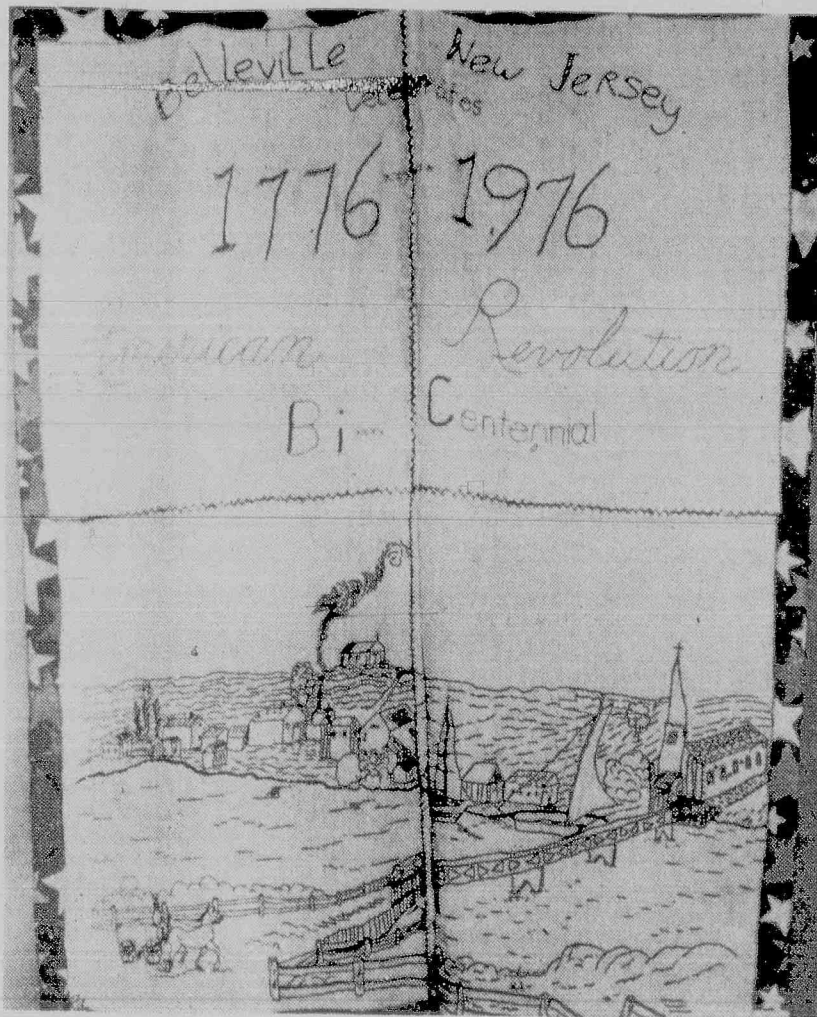 Belleville New Jersey
Celebrates
1776 - 1976
American Revolution
Bi - Centennial